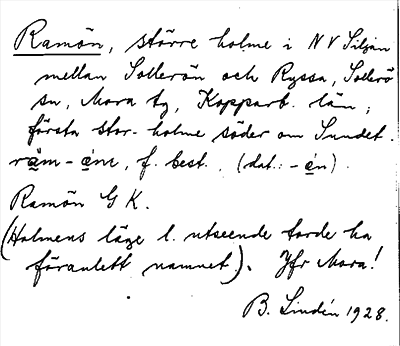 Ramön, större holme i NV Siljan
mellan Sollerön och Ryssa, Sollerö
sn, Mora tg, Kopparb. län;
första stor-holme söder om Sundet.
råm-éne, f. best., (dat.: -én).
Ramön GK.
(Holmens läge l. utseende torde ha
föranlett namnet.). Jfr Mora!
B. Lindén 1928.